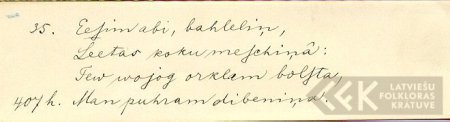 35. Eesim abi, bahleliņ,
Leetas koku meschiņâ:
Tew wojog orklem bolsta,
407 h. Man puhram dibeniņa.
LATVIEŠU
FOLKLORAS
KRĀTUVE